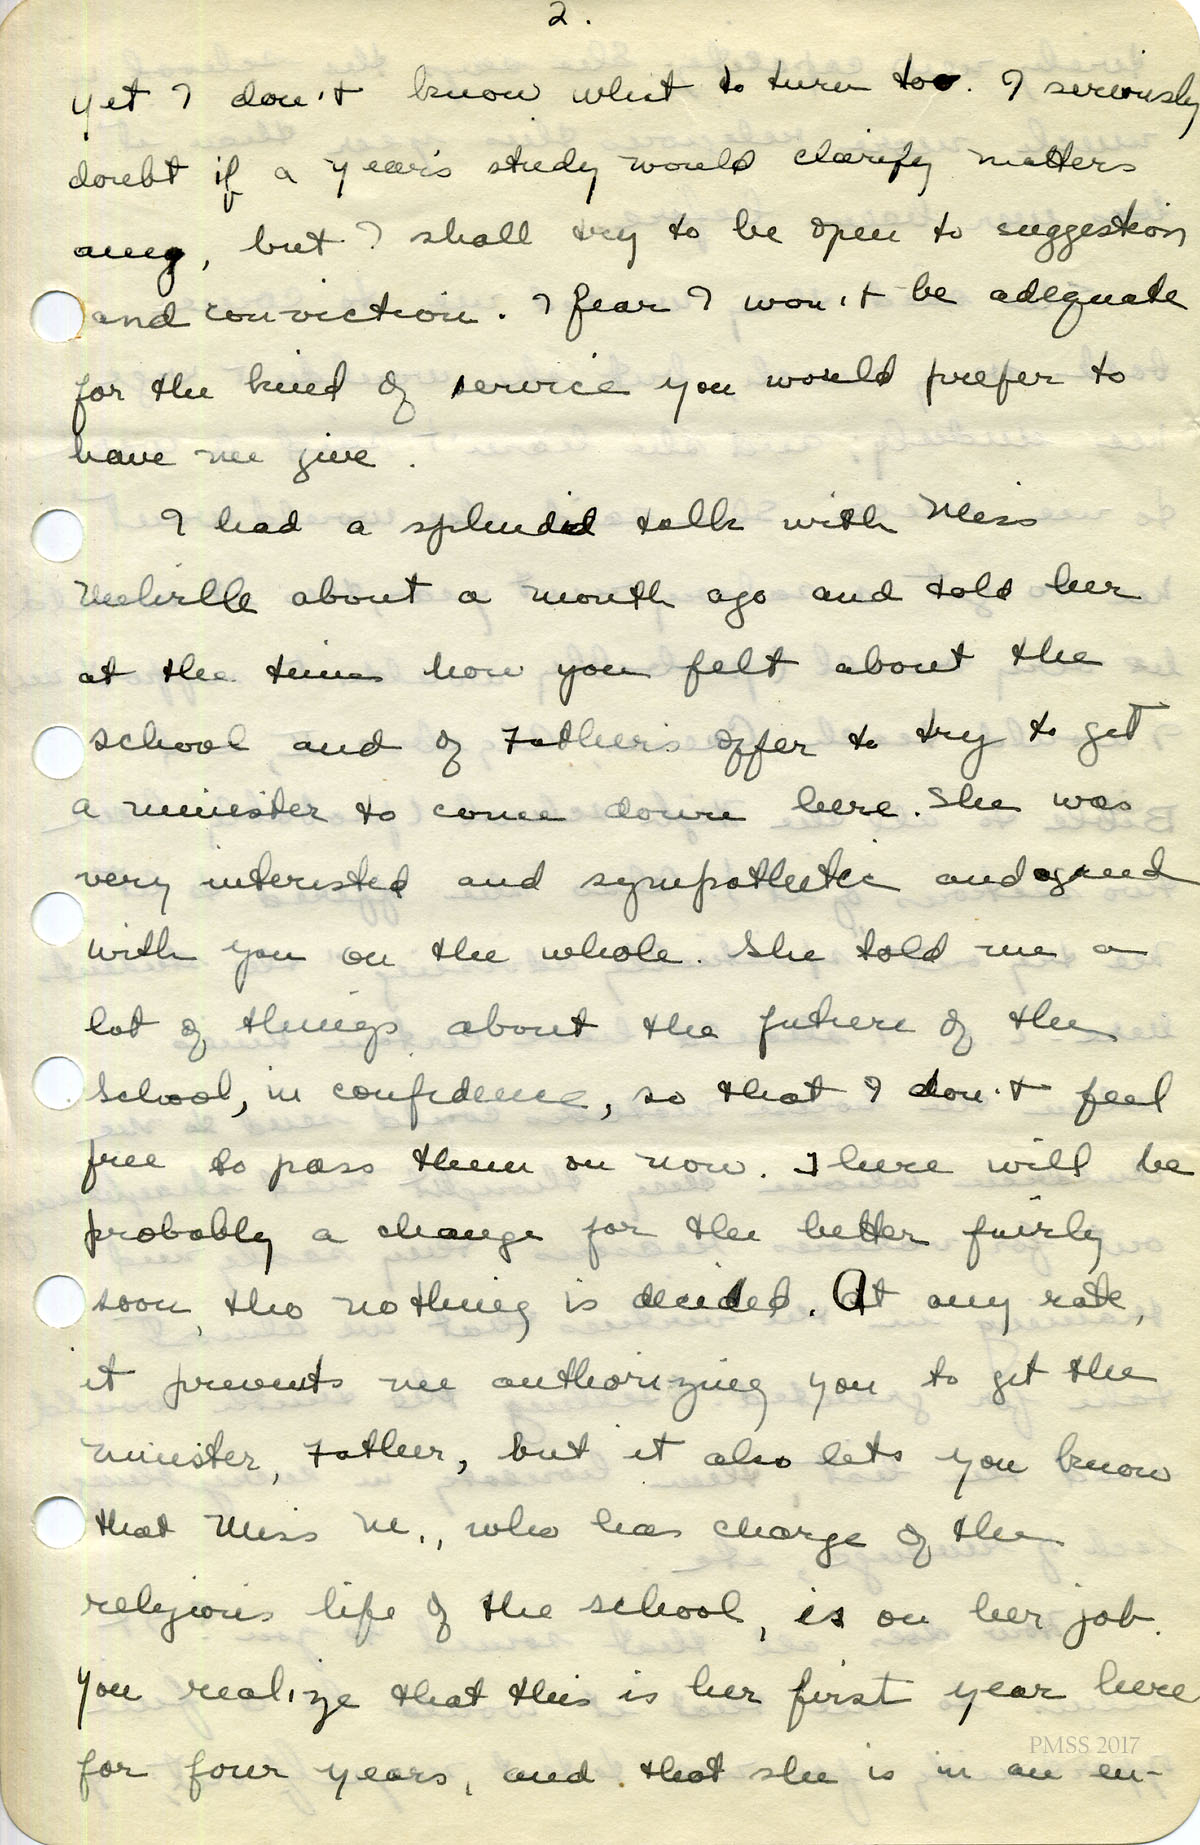 2.
yet I don't know what to turn to. I seriously
doubt if a year's study would clarify matters
any, but I shall try to be open to suggestion
and conviction. I fear I won't be adequate
for the kind of service you would prefer to
have me give.
I had a splendid talk with Miss
Melville about a month ago and told her
at the time how you felt about the
school and of Father's offer to try to get
a minister to come down here. She was
very interested and sympathetic and agreed
with you on the whole. She told me a
lot of things about the future of the
School, in confidence, so that I don't feel
free to pass them on now. There will be
probably a change for the better fairly
soon, tho nothing is decided. At any rate,
it prevents me authorizing you to get the
minister, Father, but it also lets you know
that Miss M., who has charge of the
religious life of the school, is on her job.
You realize that this is her first year here
for four years, and that she is in an en-
PMSS 2017